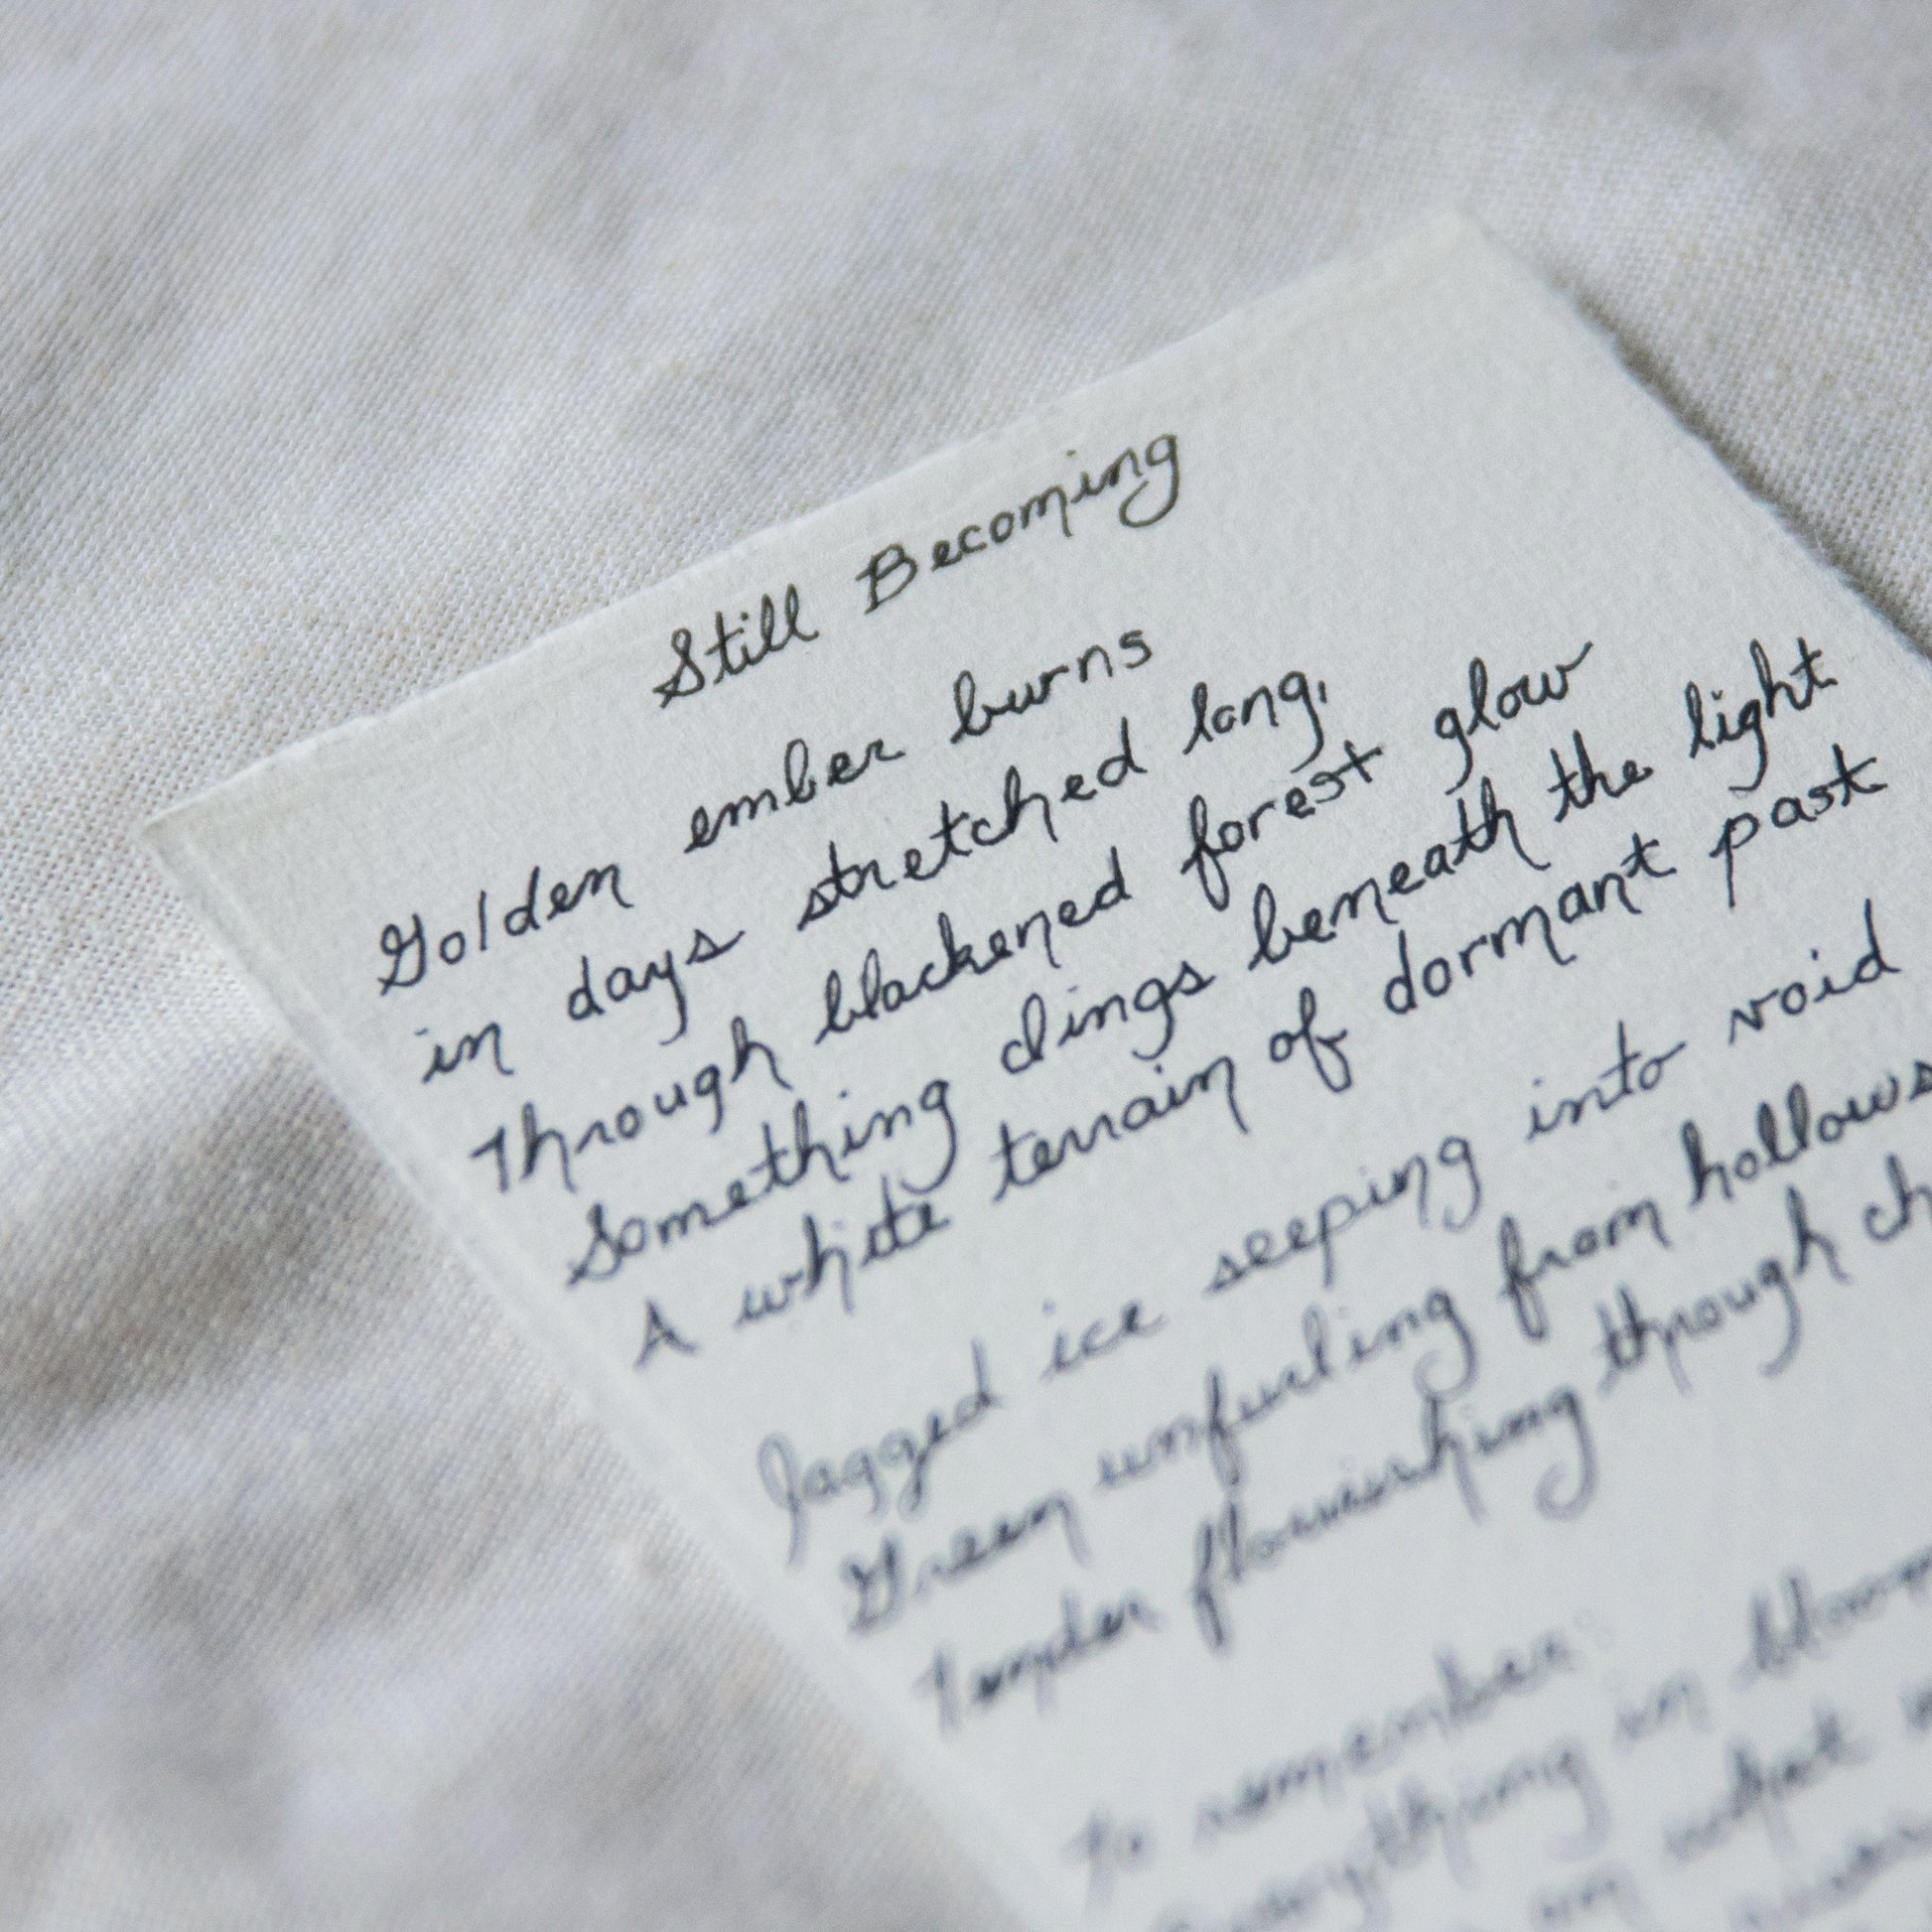 Still Becoming
Golden ember burns
in days stretched long,
Through blackened forest glow
Something clings beneath the light
A white terrain of dormant past
Jagged ice seeping into void
Green unfurling from hollows
flourishing through
To remember
Everything in
on what